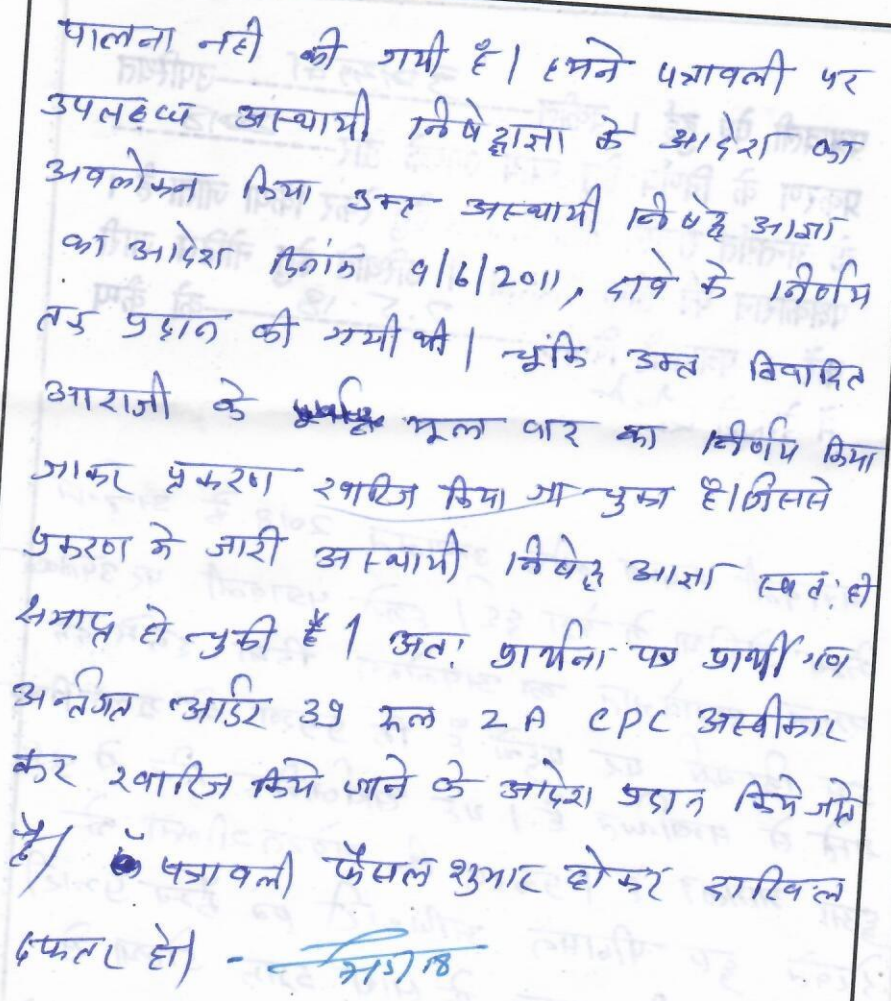 पालना नही की गयी है। हमने पत्रावली पर
उपलब्ध अस्थायी निषेद्वाज्ञा के आदेश का
अवलोकन किया उक्त अस्थायी निषेद्व आज्ञा
का आदेश दिनांक 9/6/2011, दावे के निर्णय
तक प्रदान की गयी थी। चूंकि उक्त विवादित
आराजी के मूल वाद का निर्णय किया
जाकर प्रकरण खारिज किया जा चुका है। जिससे
प्रकरण मे जारी अस्थायी निषेद्व आज्ञा स्वत: ही
समाप्त हो चुकी है। अत: प्रार्थना पत्र प्रार्थीगण
अर्न्तगत आर्डर 39 रूल 2A CPC अस्वीकार
कर खारिज किये जाने के आदेश प्रदान किये जाते
है। पत्रावली फैसल शुमार होकर दाखिल
दफतर हो। -